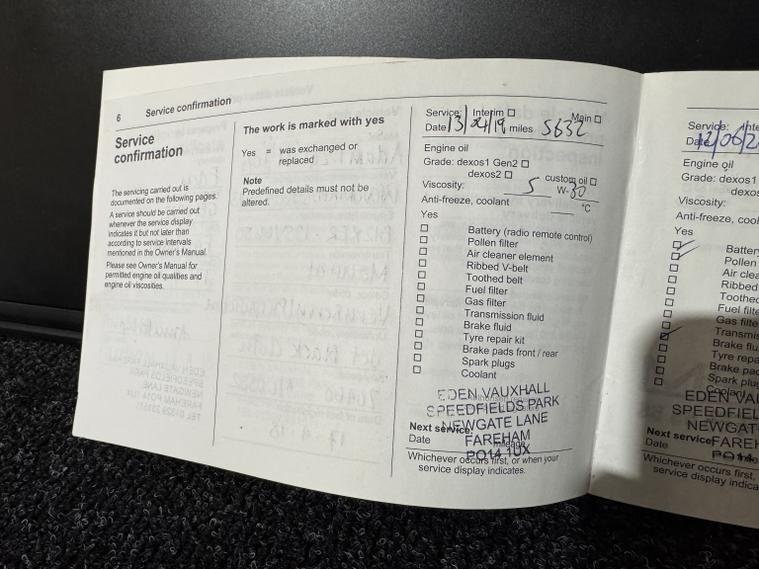 6 Service confirmation
Service
confirmation
The servicing carried out is
documented on the following pages.
A service should be carried out
whenever the service display
indicates it but not later than
according to service intervals
mentioned in the Owner's Manual.
Please see Owner's Manual for
permitted engine oil qualities and
engine oil viscosities.
The work is marked with yes
Yes = was exchanged or
replaced
Note
Predefined details must not be
altered.
Service: Interim ☐ Main ☐
Date 13/04/19 miles 5632
Engine oil
Grade: dexos1 Gen2 ☐
dexos2 ☐ custom oil ☐
Viscosity: 5 W-30
Anti-freeze, coolant °C
Yes
☐ Battery (radio remote control)
☐ Pollen filter
☐ Air cleaner element
☐ Ribbed V-belt
☐ Toothed belt
☐ Fuel filter
☐ Gas filter
☐ Transmission fluid
☐ Brake fluid
☐ Tyre repair kit
☐ Brake pads front / rear
☐ Spark plugs
☐ Coolant
EDEN VAUXHALL
SPEEDFIELDS PARK
NEWGATE LANE
FAREHAM
PO14 1UX
Next service:
Date
Whichever occurs first, or when your
service display indicates.
Service: Inte
Date
Engine oil
Grade: dexos1
dexos
Viscosity:
Anti-freeze, cool
Yes
Battery
Pollen
Air clea
Ribbed
Toothed
Fuel filte
Gas filte
Transmis
Brake flu
Tyre repa
Brake pad
Spark plug
Coolant
EDEN VAU
SPEEDFIEL
NEWGAT
FAREH
PO14
Next service
Date
Whichever occurs first,
service display indica